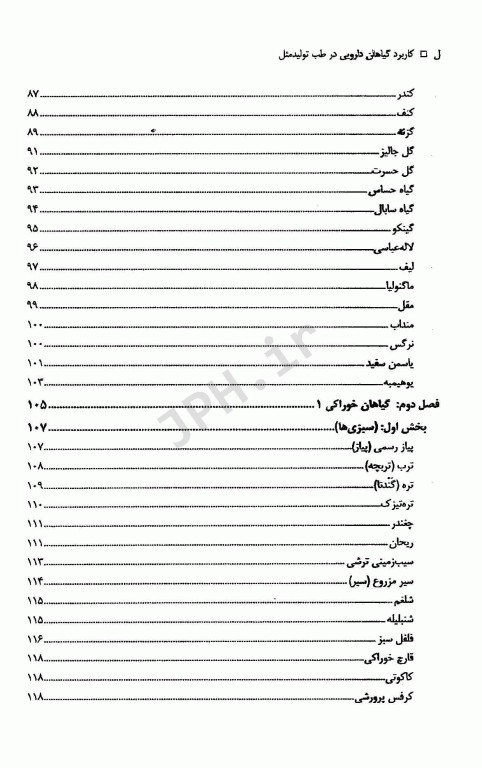 ل □ کاربرد گیاهان دارویی در طب تولیدمثل
کندر ........ ۸۷
کنف ........ ۸۸
گزنه ........ ۸۹
گل جالیز ........ ۹۱
گل حسرت ........ ۹۲
گیاه حساس ........ ۹۳
گیاه سابال ........ ۹۴
گینکو ........ ۹۵
لاله‌عباسی ........ ۹۶
لیف ........ ۹۷
ماگنولیا ........ ۹۸
مقل ........ ۹۹
منداب ........ ۱۰۰
نرگس ........ ۱۰۰
یاسمن سفید ........ ۱۰۱
یوهیمبه ........ ۱۰۳
فصل دوم: گیاهان خوراکی ۱ ........ ۱۰۵
بخش اول: (سبزی‌ها) ........ ۱۰۷
پیاز رسمی (پیاز) ........ ۱۰۷
ترب (تربچه) ........ ۱۰۸
تره (گندنا) ........ ۱۰۹
تره‌تیزک ........ ۱۱۰
چغندر ........ ۱۱۱
ریحان ........ ۱۱۱
سیب‌زمینی ترشی ........ ۱۱۳
سیر مزروع (سیر) ........ ۱۱۴
شلغم ........ ۱۱۵
شنبلیله ........ ۱۱۵
فلفل سبز ........ ۱۱۶
قارچ خوراکی ........ ۱۱۸
کاکوتی ........ ۱۱۸
کرفس پرورشی ........ ۱۱۸
JPH.ir